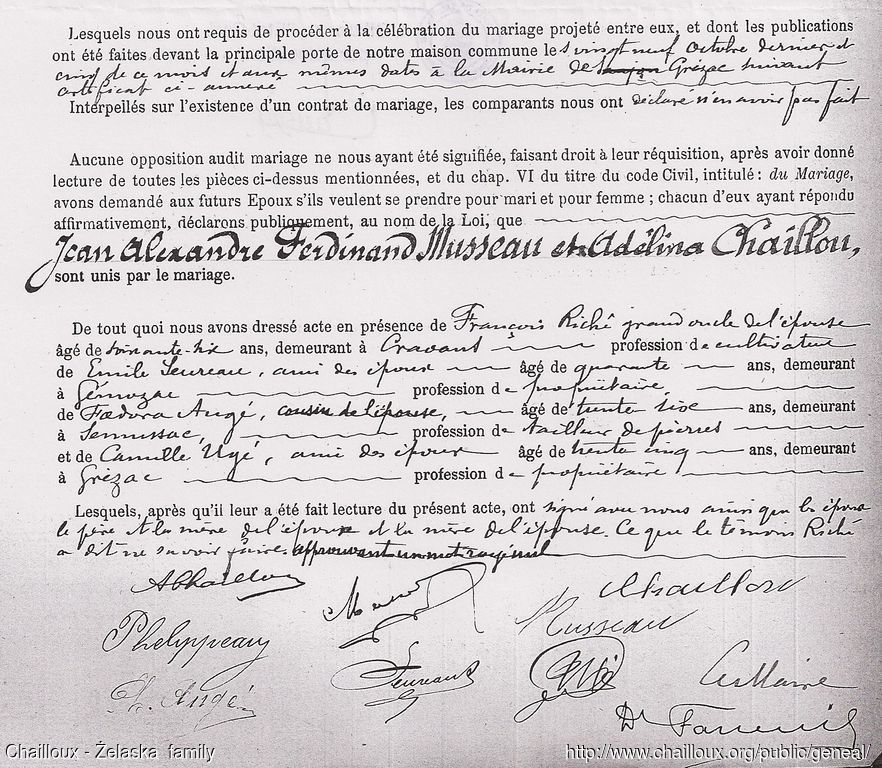 Lesquels nous ont requis de procéder à la célébration du mariage projeté entre eux, et dont les publications
ont été faites devant la principale porte de notre maison commune les vingt neuf Octobre dernier et
cinq de ce mois et aux mêmes dates à la Mairie de Grézac suivant
certificat ci-annexé
Interpellés sur l'existence d'un contrat de mariage, les comparants nous ont déclaré n'en avoir pas fait
Aucune opposition audit mariage ne nous ayant été signifiée, faisant droit à leur réquisition, après avoir donné
lecture de toutes les pièces ci-dessus mentionnées, et du chap. VI du titre du code Civil, intitulé : du Mariage,
avons demandé aux futurs Epoux s'ils veulent se prendre pour mari et pour femme ; chacun d'eux ayant répondu
affirmativement, déclarons publiquement, au nom de la Loi, que
Jean Alexandre Ferdinand Musseau et Adélina Chaillou,
sont unis par le mariage.
De tout quoi nous avons dressé acte en présence de François Riché grand oncle de l'épouse
âgé de soixante-six ans, demeurant à Cravans profession de cultivateur
de Emile Seureau, ami des époux âgé de quarante ans, demeurant
à Gémozac profession de propriétaire,
de Fœdora Augé, cousin de l'épouse, âgé de trente six ans, demeurant
à Semussac, profession de tailleur de pierres
et de Camille Ugé, ami des époux âgé de trente cinq ans, demeurant
à Grézac profession de propriétaire
Lesquels, après qu'il leur a été fait lecture du présent acte, ont signé avec nous ainsi que les époux
le père et la mère de l'époux et la mère de l'épouse. Ce que le témoin Riché
a dit ne savoir faire. approuvant un mot rayé nul
AChaillou
Chaillou
Musseau
Phelippeau
F. Augé
Seureau
Ugé
Le Maire
Dr
Chailloux - Żelaska family
http://www.chailloux.org/public/geneal/